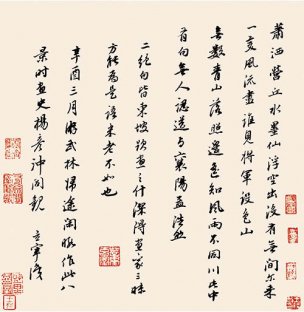 蕭洒營丘水墨仙浮空出沒有無間尔來
一變風流盡誰見將軍設色山
無數青山落照邊遙知風雨不同川此中
有句無人認送與襄陽孟浩然
二絕句皆東坡題畫之什深得畫家三昧
方能為是語米老不如也
辛酉三月游武林歸途閑暇作此八
景时畫史楊晉沖同觀
王翬識